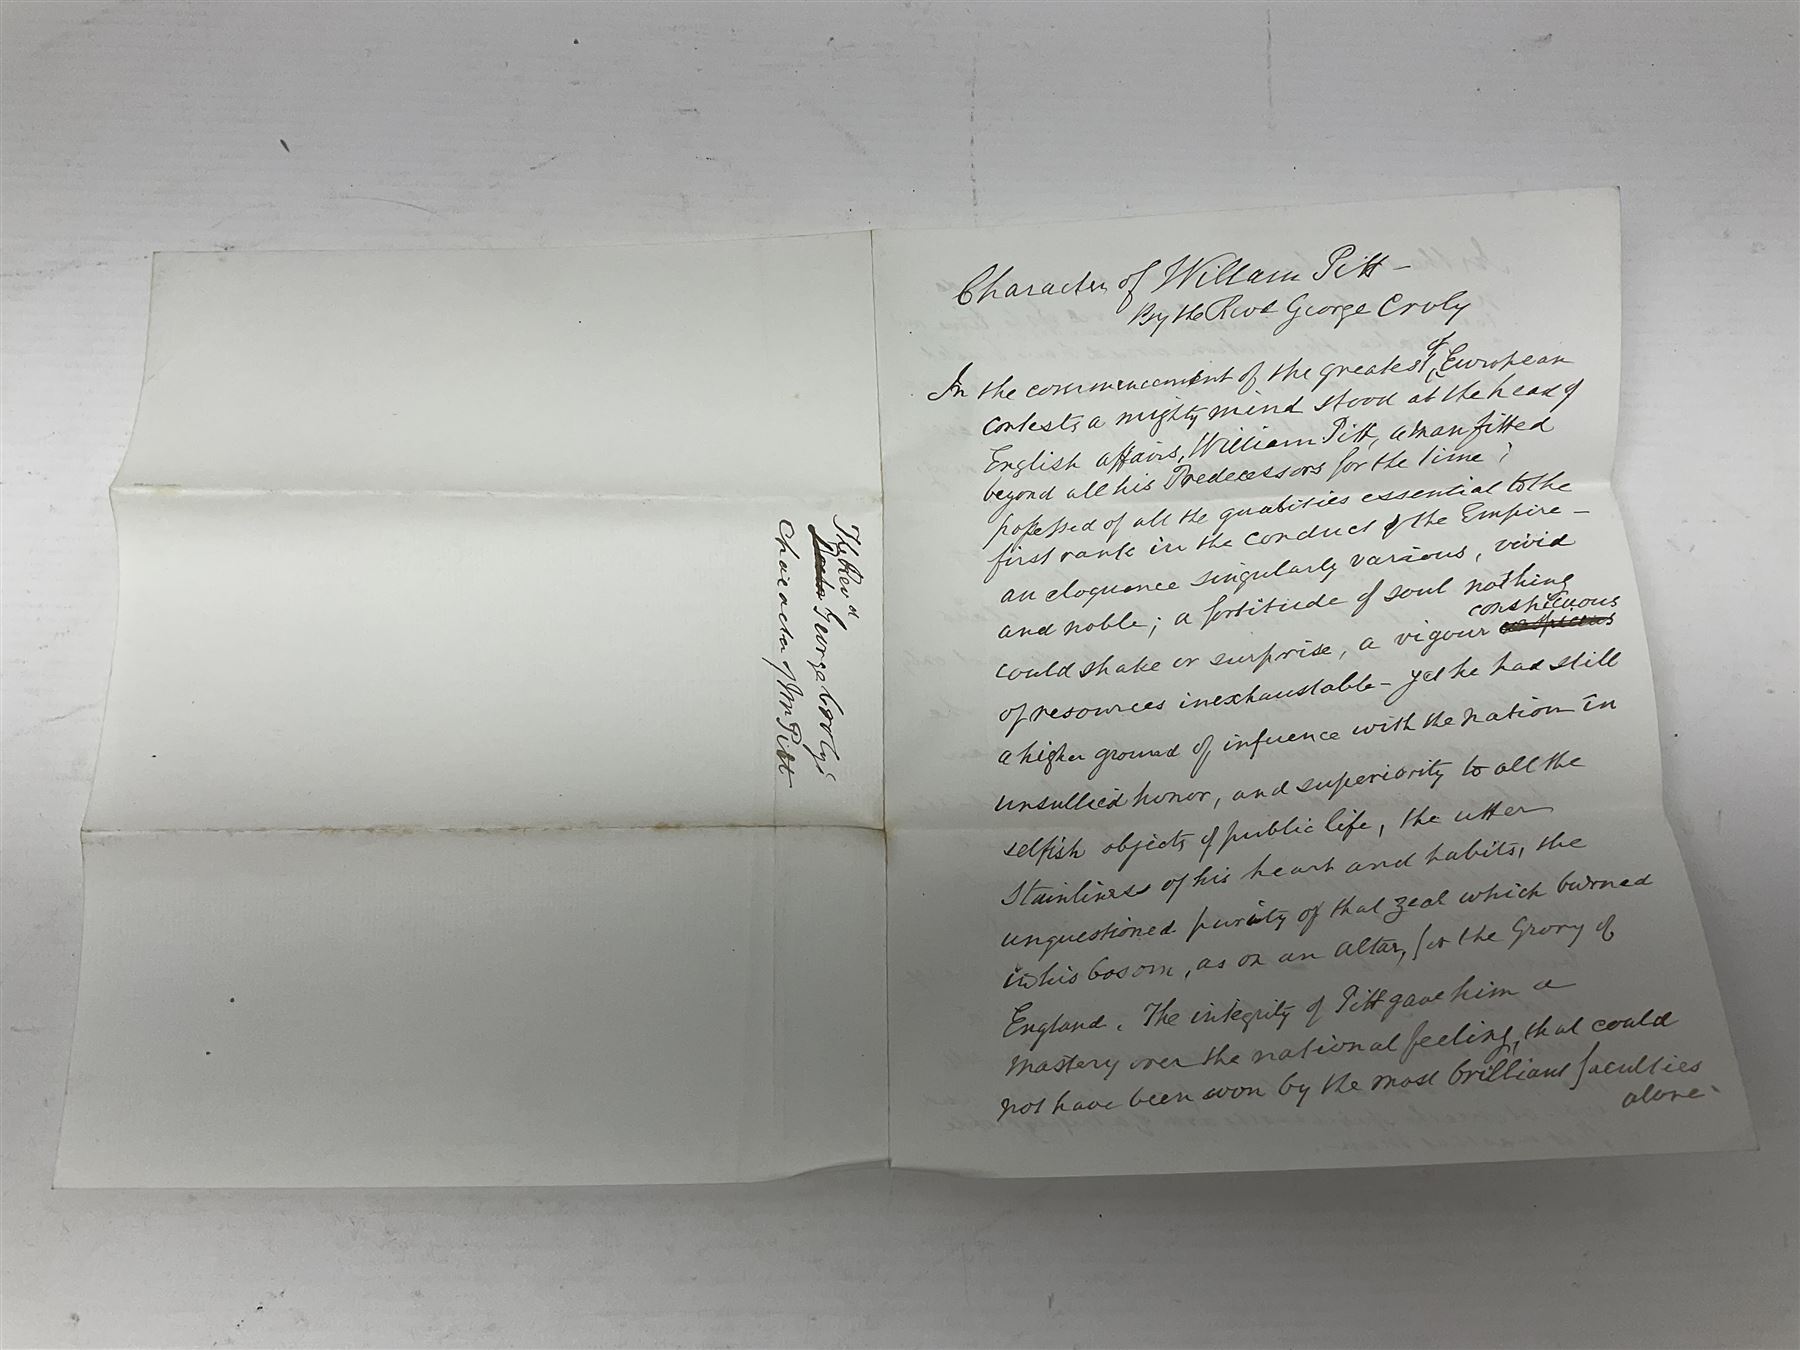 Character of William Pitt -
By the Revd George Croly
In the commencement of the greatest of European
contests, a mighty mind stood at the head of
English affairs, William Pitt, a man fitted
beyond all his Predecessors for the time;
possessed of all the quabities essential to the
first rank in the conduct of the Empire -
an eloquence singularly various, vivid
and noble; a fortitude of soul nothing
could shake or surprise, a vigour conspicuous
of resources inexhaustable - yet he had still
a higher ground of infuence with the nation in
unsullied honor, and superiority to all the
selfish objects of public life, the utter
Stainliness of his heart and habits, the
unquestioned purity of that zeal which burned
in his bosom, as on an altar, for the Glory of
England. The integrity of Pitt gave him a
mastery over the national feeling, that could
not have been won by the most brilliant faculties
alone -
The Revd
George Croly's
Character of Mr Pitt